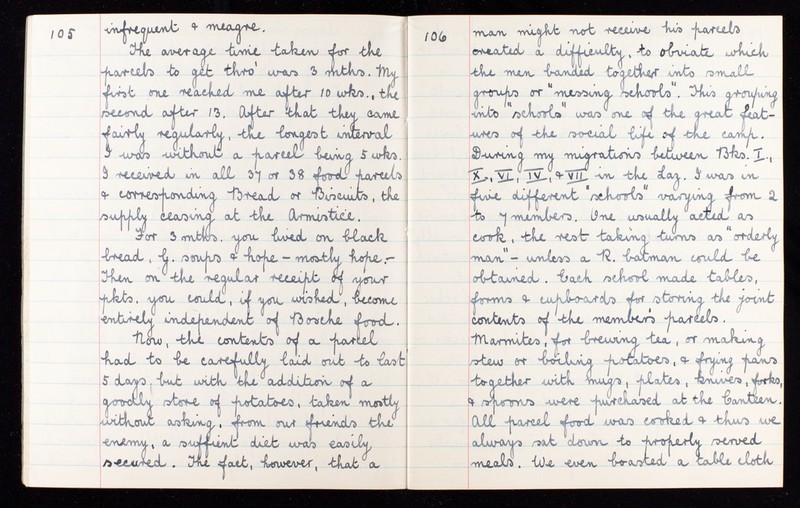 105
infrequent & meagre.
The average time taken for the
parcels to get thro' was 3 mths. My
first one reached me after 10 wks., the
second after 13. After that they came
fairly regularly, the longest interval
I was without a parcel being 5 wks.
I received in all 37 or 38 food parcels
& corresponding Bread or Biscuits, the
supply ceasing at the Armistice.
For 3 mths. you lived on black
bread, G. soups & hope – mostly hope.–
Then on the regular receipt of your
pkts. you could, if you wished, become
entirely independent of Bosche food.
Now, the contents of a parcel
had to be carefully laid out to last
5 days, but with the addition of a
goodly store of potatoes, taken mostly
without asking, from our friends the
enemy, a suffient diet was easily
secured. The fact, however, that a
106
man might not receive his parcels
created a difficulty, to obviate which
the men banded together into small
groups or "messing schools". This grouping
into "schools" was one of the great feat-
ures of the social life of the camp.
During my migrations between Bks. I.,
X., VI, IV, & VII in the Lag. I was in
five different "schools" varying from 2
to 7 members. One usually acted as
cook, the rest taking turns as "orderly
man" – unless a R. batman could be
obtained. Each school made tables,
forms & cupboards for storing the joint
contents of the members parcels.
Marmites, for brewing tea, or making
stew or boiling potatoes, & frying pans
together with mugs, plates, knives, forks,
& spoons were purchased at the Canteen.
All parcel food was cooked & thus we
always sat down to properly served
meals. We even boasted a table cloth